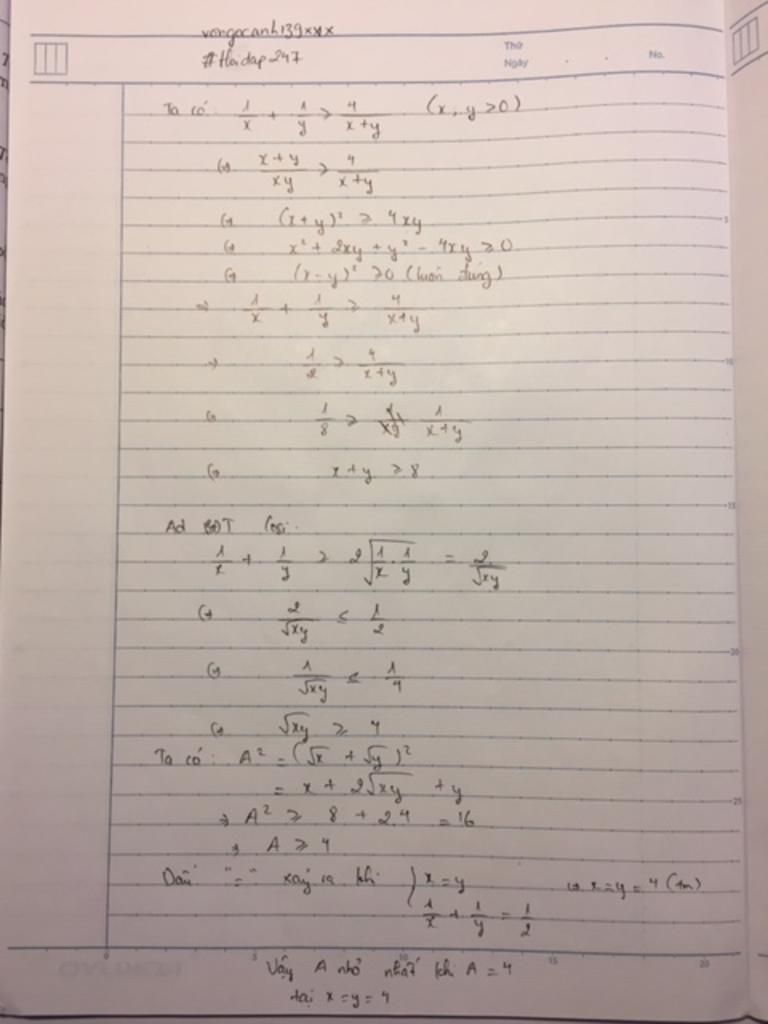 vongocanh139xxx
#Hoidap247
Thứ
Ngày
No.
Ta có: 1/x + 1/y ≥ 4/(x+y) (x, y >0)
(=) (x+y)/xy ≥ 4/(x+y)
(=) (x+y)² ≥ 4xy
(=) x² + 2xy + y² - 4xy ≥ 0
(=) (x-y)² ≥0 (luôn đúng)
=> 1/x + 1/y ≥ 4/(x+y)
=> 1/2 ≥ 4/(x+y)
(=) 1/8 ≥ 1/(x+y)
(=) x+y ≥ 8
Ad BĐT Cosi:
1/x + 1/y ≥ 2√(1/x . 1/y) = 2/√xy
(=) 2/√xy ≤ 1/2
(=) 1/√xy ≤ 1/4
(=) √xy ≥ 4
Ta có: A² = (√x + √y)²
= x + 2√xy + y
=> A² ≥ 8 + 2.4 = 16
=> A ≥ 4
Dấu "=" xảy ra khi { x=y
1/x + 1/y = 1/2
(=) x=y = 4 (tm)
Vậy A nhỏ nhất khi A = 4
tại x=y=4
5
10
15
20
25
0
5
10
15
20